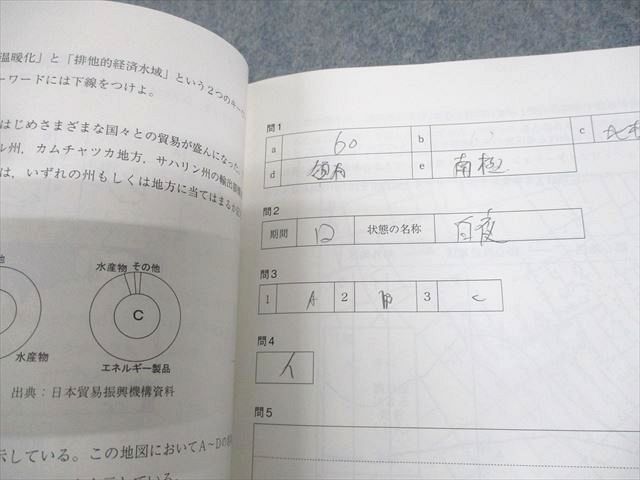 温暖化」と「排他的経済水域」という２つのキー
ーワードには下線をつけよ。
はじめさまざまな国々との貿易が盛んになった
ル州，カムチャツカ地方，サハリン州の輸出
は，いずれの州もしくは地方に当てはまるか
他
水産物 その他
C
水産物
エネルギー製品
出典：日本貿易振興機構資料
示している。この地図においてA～Dの
問1
a 60 b c
d 領有 e 南極
問2
期間 ロ 状態の名称 白夜
問3
1 A 2 B 3 C
問4
イ
問5